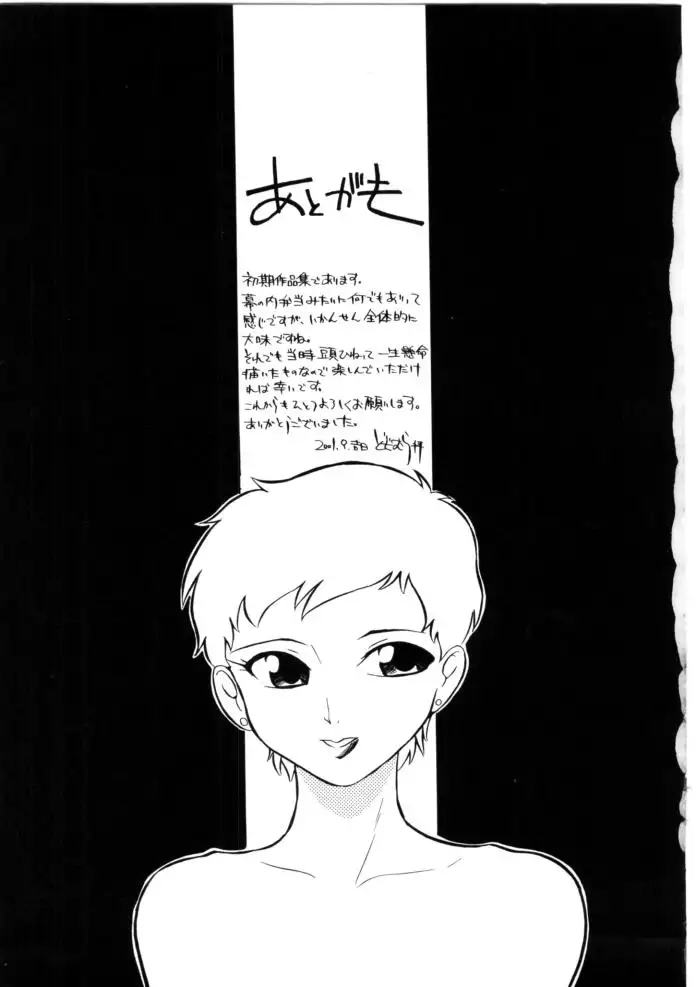 あとがき
初期作品集であります。
幕の内弁当みたいに何でもありって
感じですが、いかんせん全体的に
大味ですね。
それでも当時頭ひねって一生懸命
描いたものなので楽しんでいただけ
れば幸いです。
これからもひとつよろしくお願いします。
ありがとうございました。
2001.9.吉日 どどむら拝